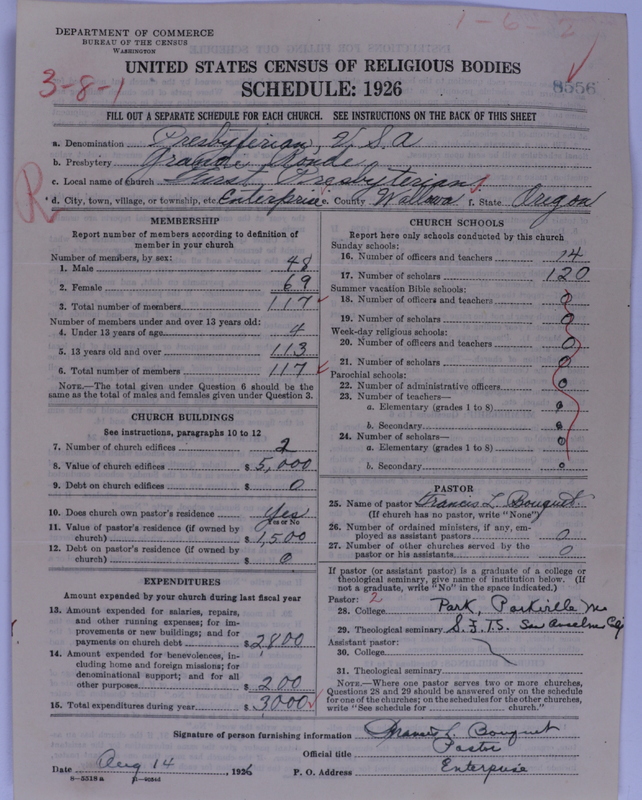 1-6
DEPARTMENT OF COMMERCE
BUREAU OF THE CENSUS
WASHINGTON
UNITED STATES CENSUS OF RELIGIOUS BODIES
SCHEDULE: 1926
3-8-1
8556
FILL OUT A SEPARATE SCHEDULE FOR EACH CHURCH. SEE INSTRUCTIONS ON THE BACK OF THIS SHEET
a. Denomination Presbyterian, U.S.A
b. Presbytery Grande Ronde
c. Local name of church First Presbyterian
R
d. City, town, village, or township, etc. Enterprise e. County Wallowa f. State Oregon
MEMBERSHIP
Report number of members according to definition of
member in your church
Number of members, by sex:
1. Male 48
2. Female 69
3. Total number of members 117
Number of members under and over 13 years old:
4. Under 13 years of age 4
5. 13 years old and over 113
6. Total number of members 117
NOTE.—The total given under Question 6 should be the
same as the total of males and females given under Question 3.
CHURCH BUILDINGS
See instructions, paragraphs 10 to 12
7. Number of church edifices 2
8. Value of church edifices $ 5,000
9. Debt on church edifices $ 0
10. Does church own pastor's residence Yes
Yes or No
11. Value of pastor's residence (if owned by
church) $ 1,500
12. Debt on pastor's residence (if owned by
church) $ 0
EXPENDITURES
Amount expended by church during last fiscal year
13. Amount expended for salaries, repairs,
and other running expenses; for im-
provements or new buildings; and for
payments on church debt $ 2800
14. Amount expended for benevolences, in-
cluding home and foreign missions; for
denominational support; and for all
other purposes $ 200
15. Total expenditures during year $ 3000
CHURCH SCHOOLS
Report here only schools conducted by this church
Sunday schools:
16. Number of officers and teachers 14
17. Number of scholars 120
Summer vacation Bible schools:
18. Number of officers and teachers 0
19. Number of scholars 0
Week-day religious schools:
20. Number of officers and teachers 0
21. Number of scholars 0
Parochial schools:
22. Number of administrative officers 0
23. Number of teachers—
a. Elementary (grades 1 to 8) 0
b. Secondary 0
24. Number of scholars—
a. Elementary (grades 1 to 8) 0
b. Secondary 0
PASTOR
25. Name of pastor Francis L. Bouquet
(If church has no pastor, write "None")
26. Number of ordained ministers, if any, em-
ployed as assistant pastors 0
27. Number of other churches served by the
pastor or his assistants 0
If pastor (or assistant pastor) is a graduate of a college or
theological seminary, give name of institution below. (If
not a graduate, write "No" in the space indicated.)
Pastor: 2
28. College Park, Parkville Mo
29. Theological seminary S.F.T.S. San Anselmo
Assistant pastor:
30. College
31. Theological seminary
NOTE.—Where one pastor serves two or more churches,
Questions 28 and 29 should be answered only on the schedule
for one of the churches; on the schedules for the other churches,
write "See schedule for church."
Signature of person furnishing information Francis L. Bouquet
Official title Pastor
Date Aug 14, 1926 P. O. Address Enterprise
8—5518a